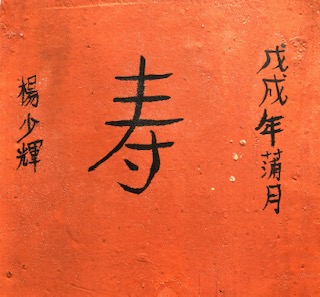 戊戌年蒲月
寿
楊少輝